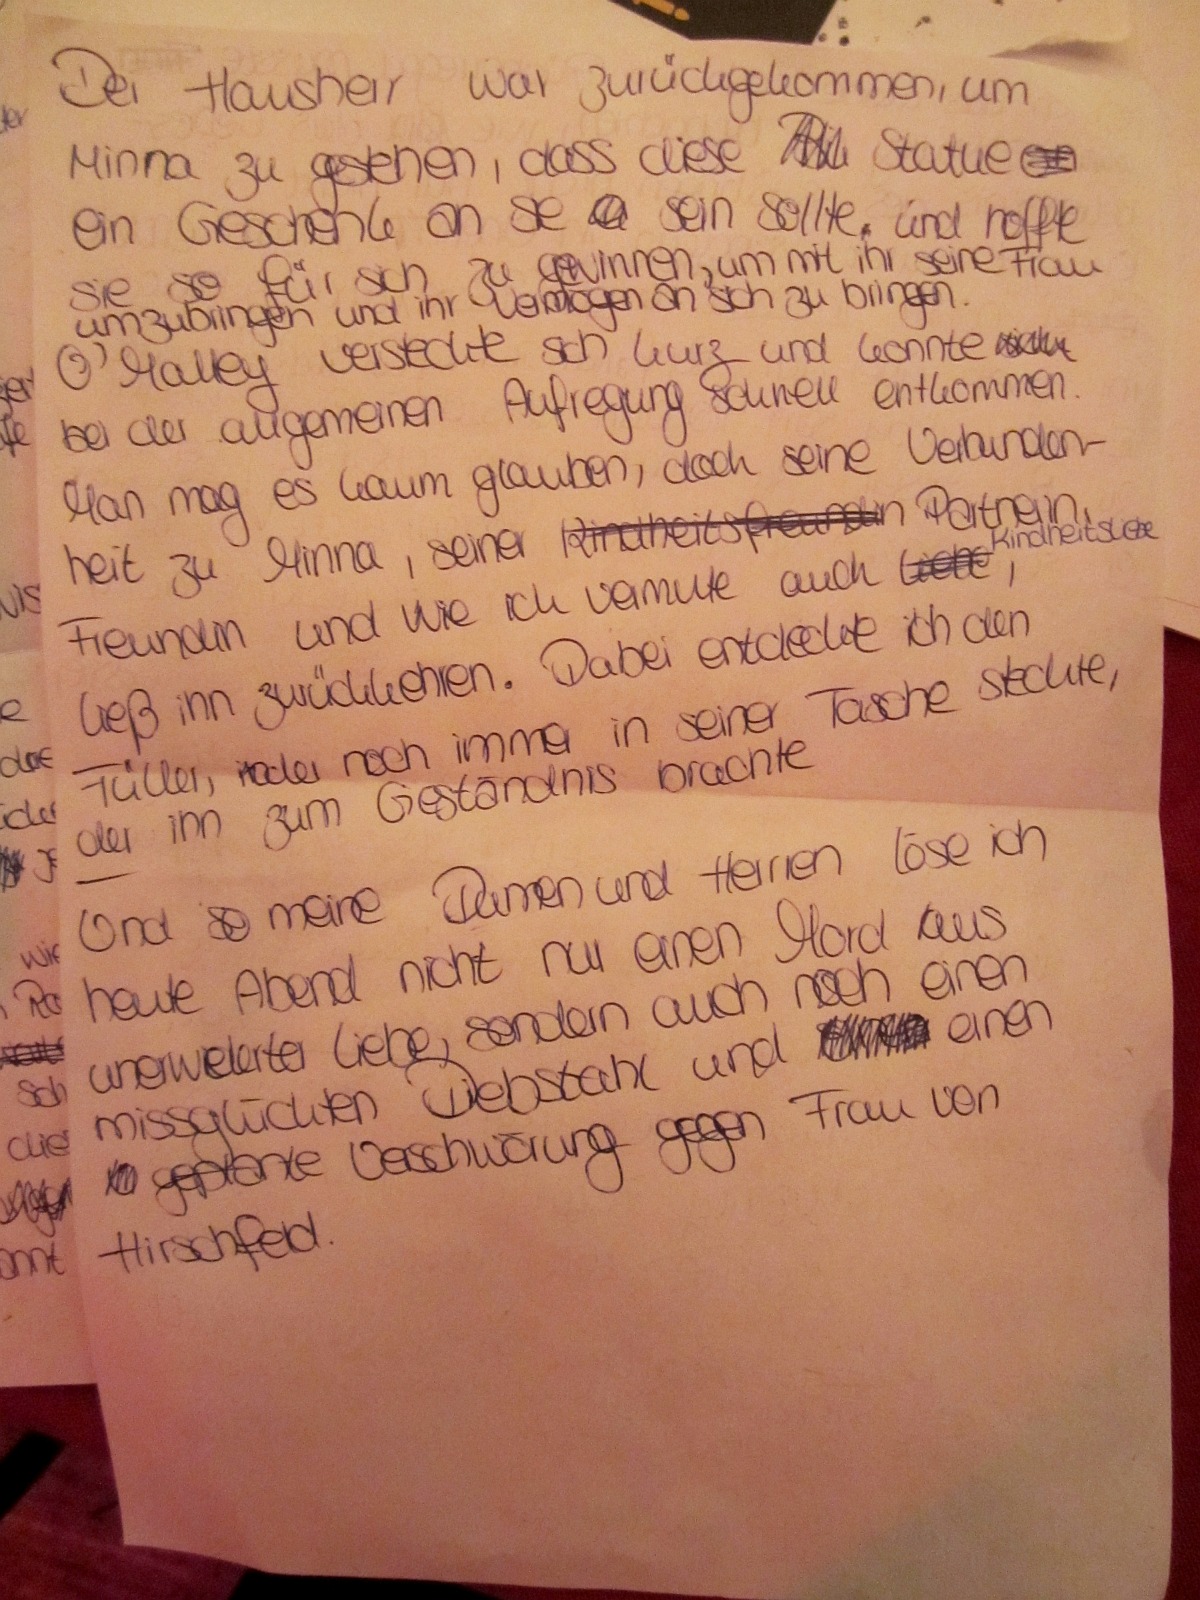 Der Hausherr war zurückgekommen, um
Minna zu gestehen, dass diese Statue
ein Geschenk an sie sein sollte. und hoffte
sie so für sich zu gewinnen, um mit ihr seine Frau
umzubringen und ihr Vermögen an sich zu bringen.
O'Malley versteckte sich kurz und konnte
bei der allgemeinen Aufregung schnell entkommen.
Man mag es kaum glauben, doch seine Verbunden-
heit zu Minna, seiner Kindheitsfreundin Partnerin,
Kindheitsliebe
Freundin und wie ich vermute auch Liebe,
ließ ihn zurückkehren. Dabei entdeckte ich den
Füller, der noch immer in seiner Tasche steckte,
der ihn zum Geständnis brachte
Und so meine Damen und Herren löse ich
heute Abend nicht nur einen Mord aus
unerwiderter Liebe, sondern auch noch einen
missglückten Diebstahl und einen
geplante Verschwörung gegen Frau von
Hirschfeld.